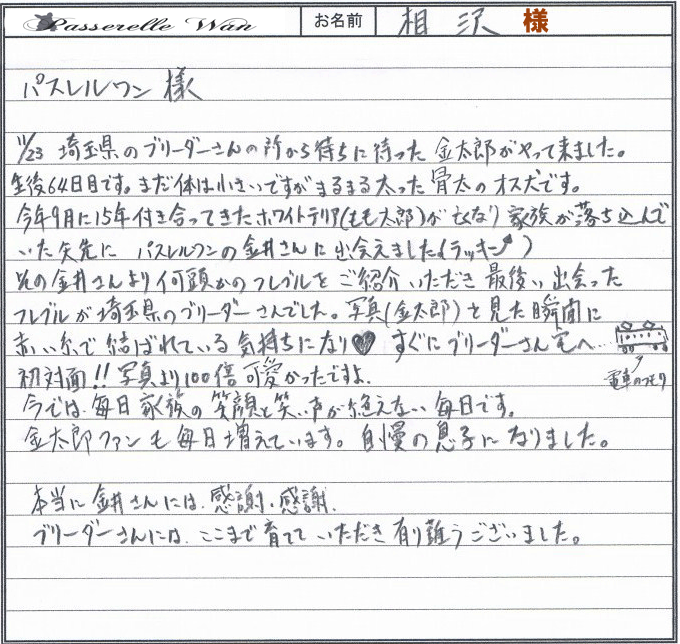 Passerelle Wan お名前 相沢 様
パスレルワン 様
11/23 埼玉県のブリーダーさんの所から待ちに待った 金太郎がやって来ました。
生後64日目です。まだ体は小さいですがまるまる太った骨太のオス犬です。
今年9月に15年付き合ってきたホワイトテリア(もも太郎)が亡くなり 家族が落ち込んで
いた矢先に パスレルワンの金井さんに出会えました(ラッキー♪)
その金井さんより何頭かのフレブルをご紹介いただき 最後に出会った
フレブルが埼玉県のブリーダーさんでした。写真(金太郎)を見た瞬間に
赤い糸で結ばれている気持ちになり♥ すぐにブリーダーさん宅へ…
電車のつもり
初対面!! 写真より100倍可愛かったですよ.
今では毎日家族の笑顔と笑い声が絶えない毎日です。
金太郎ファンも毎日増えています。自慢の息子になりました。
本当に金井さんには、感謝、感謝.
ブリーダーさんには、ここまで育てていただき有り難うございました。